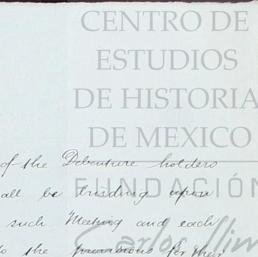 CENTRO DE
ESTUDIOS
DE HISTORIA
DE MEXICO
FUNDACIÓN
Carlos Slim
of the Debenture holders
all be binding upon
such Meeting and each
to the provisions for their